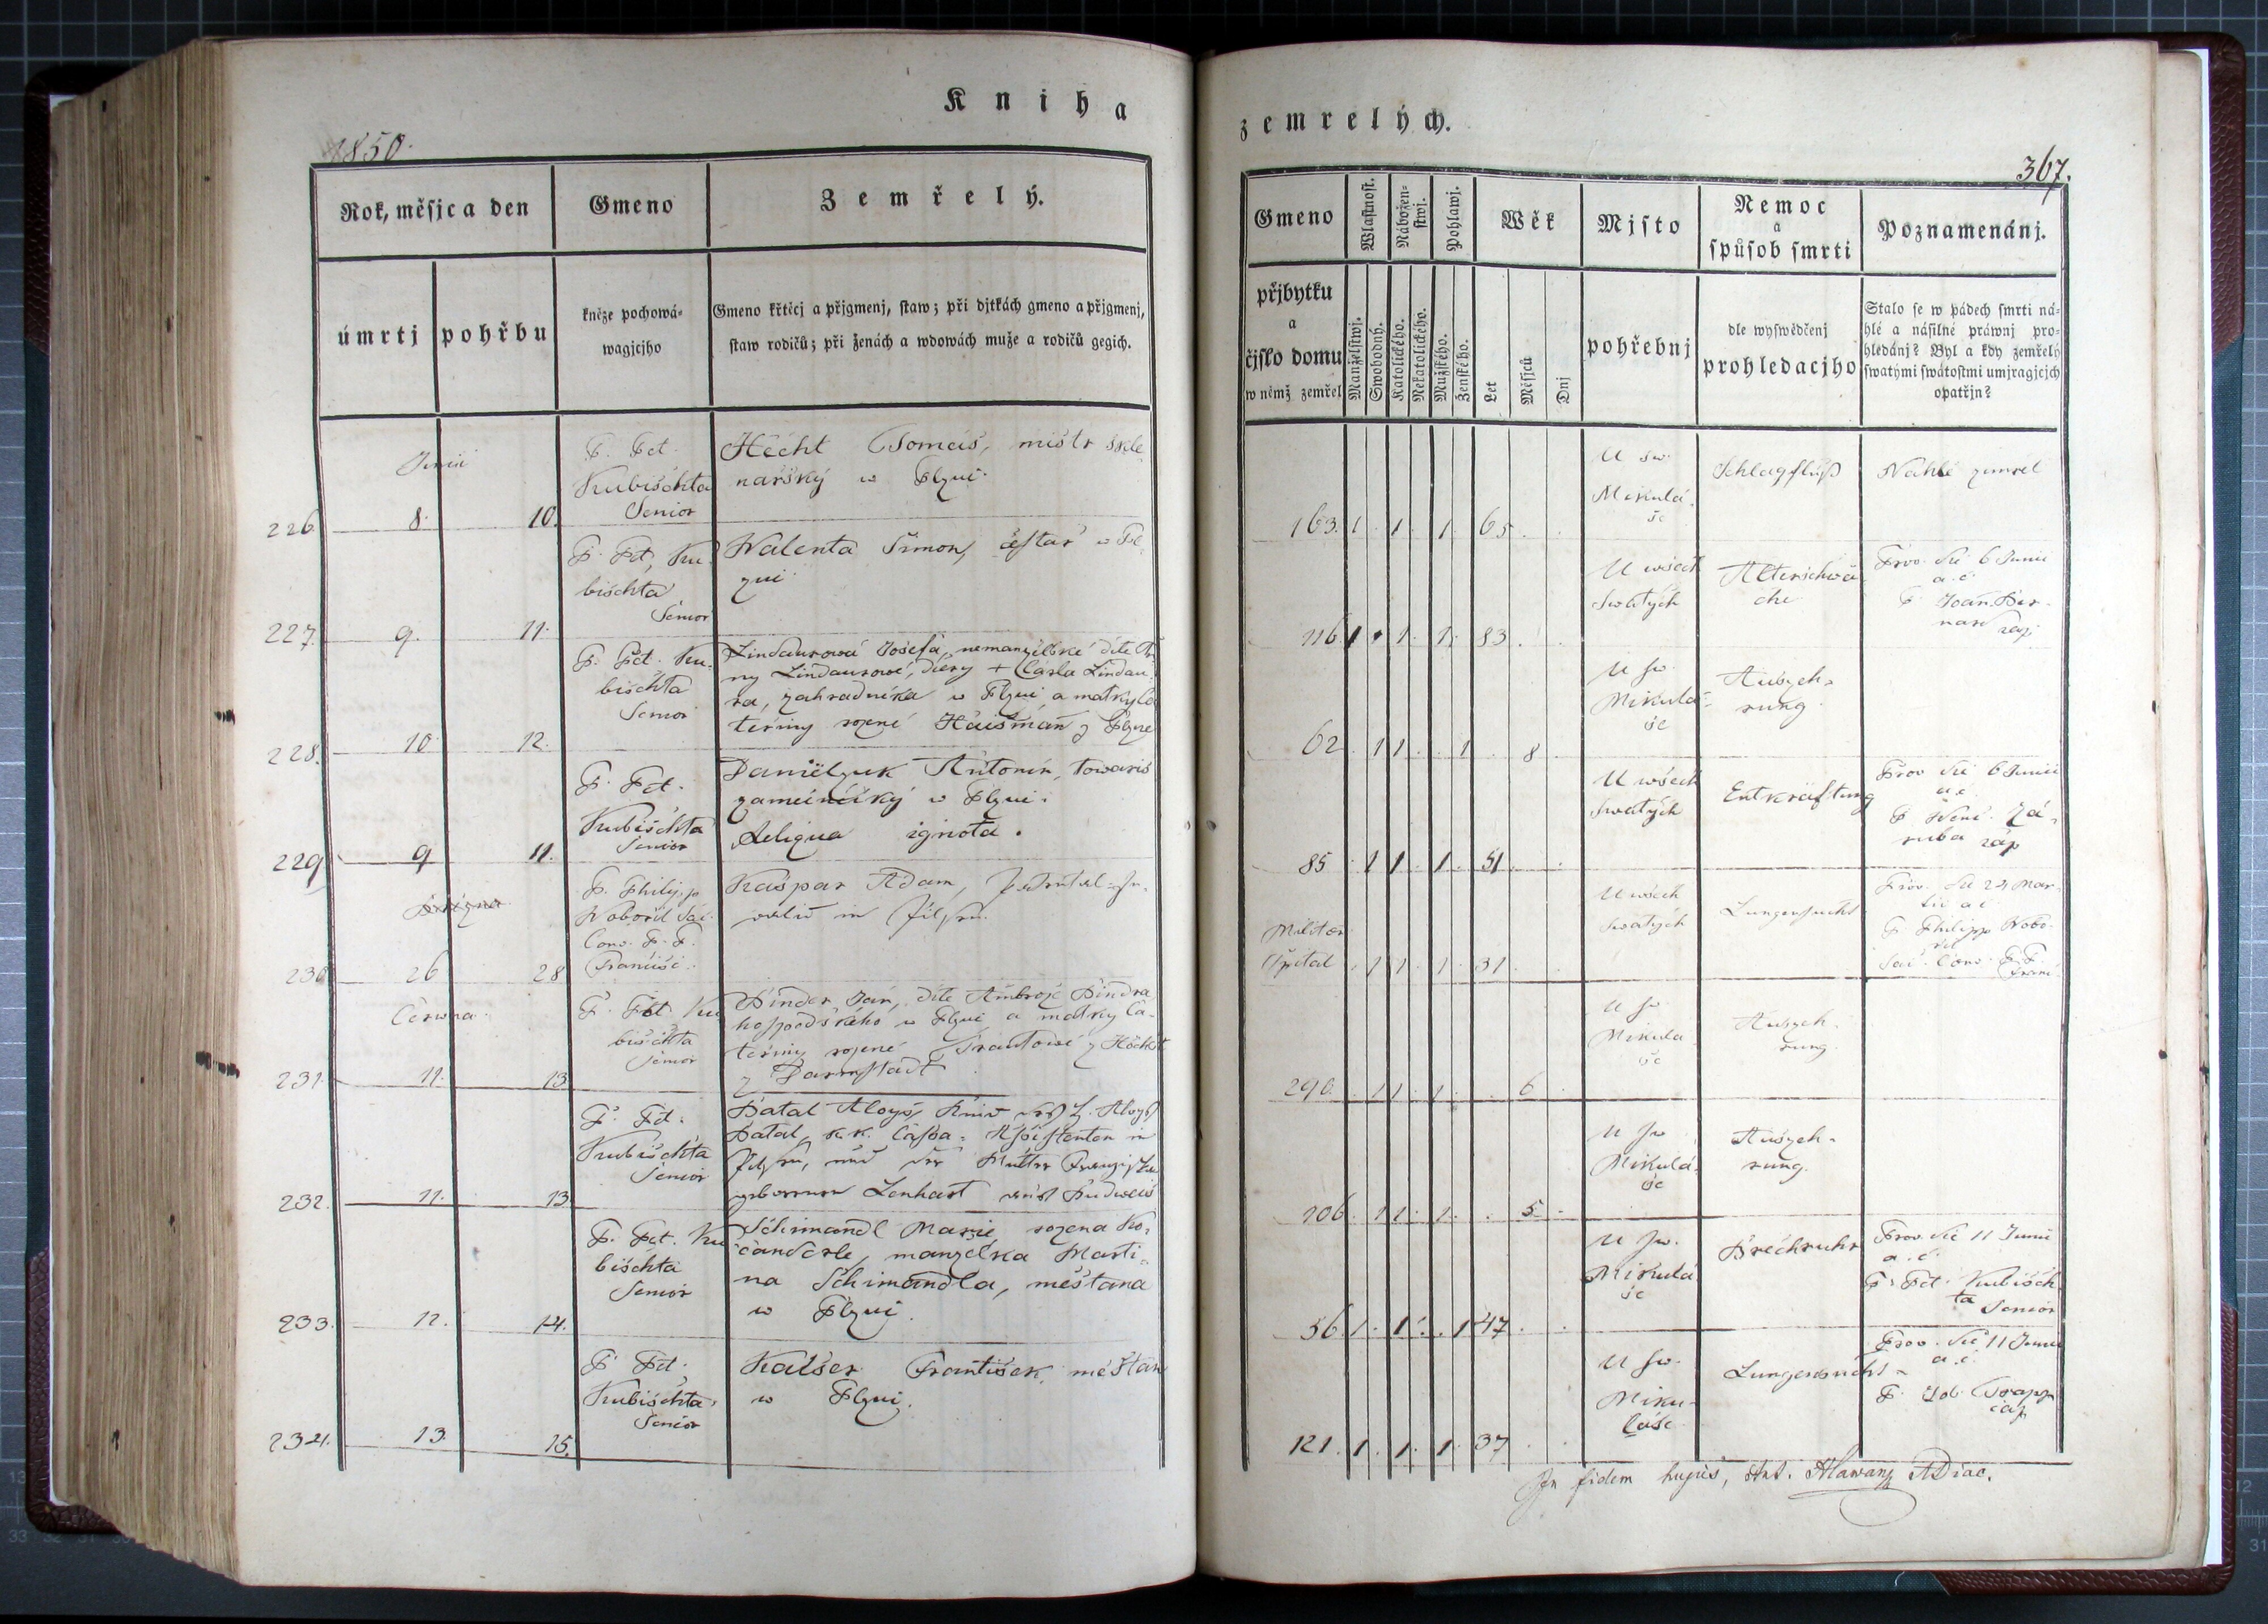 Kniha
zemrelých.
1850.
367.
Rok, měsjc a den
Gmeno
Zemřelý.
úmrtj
pohřbu
kněze pochowá-
wagjcjho
Gmeno křtěcj a přjgmenj, staw; při djtkách gmeno a přjgmenj,
staw rodičů; při ženách a wdowách muže a rodičů gegich.
Gmeno
Wlastnost.
Nábožen-
stwj.
Pohlawj.
Wěk
Mjsto
Nemoc
a
spůsob smrti
Poznamenánj.
přjbytku
a
čjslo domu
w němž zemřel
Manželstwj.
Swobodný.
Katolického.
Nekatolického.
Mužského.
Ženského.
Let
Měsjců
Dnj
pohřebnj
dle wyswědčenj
prohledacjho
Stalo se w pádech smrti ná-
hlé a násilné práwnj pro-
hledánj? Byl a kdy zemřelý
swatými swátostmi umjragjcjch
opatřjn?
Junii
226. 8. 10.
P. Pet.
Kubischta
Senior
Hecht Tomas, mistr skle
nařský w Plzni.
163. 1. 1. 1. 65
U sw.
Mikulá
še
Schlagfluß
Náhle zemrel
227. 9. 11.
P. Pet. Ku
bischta
Senior
Walenta Šimon, cestar w Pl
zni
116. 1 1. 1. 83
U wšech
Swatých
Alterschwä
che
Prov. die 6 Junii
a. c.
P. Joan. Ber
nard
228. 10. 12.
P. Pet. Ku
bischta
Senior
Lindaurowá Josefa, nemanželské díte An
ny Lindaurowé, dcery + Carla Lindau
ra, zahradníka w Plzni a matky Ca
teriny rozené Hausman z Plzne
62 1 1 1 8
U sw.
Mikulá
še
Auszeh-
rung.
229. 9 11.
P. Pet.
Kubischta
Senior
Danielzuk Antonin, towariš
zamečnícký w Plzni.
Reliqua ignota.
85 1 1 1. 51
U wšech
Swatých
Entkräftung
Prov die 6 Junii
a. c.
P. Wenc. Zá-
ruba
230 26 28
P. Philipp
Wobořil Sac.
Conv. P. P.
Francisci.
Kaspar Adam, Patental-In-
valid in Pilsen.
Militär
Spital 1 1. 1. 31
U wšech
Swatých
Lungensucht
Prov. die 29 Mar-
tii a c
P. Philipp Wobo-
řil
Sac. Conv. P. P.
Franc.
Června
231. 11. 13
P. Pet. Ku
bischta
Senior
Binder Jan, díte Ambrože Bindra
hospodského w Plzni a matky Ca-
teriny rozené Trautowé z Höchst
z Darmstadt
290. 1 1. 1. 6
U sw
Mikula
še
Auszeh-
rung.
232. 11. 13
P. Pet.
Kubischta
Senior
Batal Aloys, Kind des H. Aloys
Batal, k.k. Cassa-Assistenten in
Pilsen, und der Mutter Franziska
gebornen Lenhart aus Budweis
206. 1 1. 1. 5
U sw
Mikulá
še
Auszeh-
rung.
233. 12. 14.
P. Pet. Ku
bischta
Senior
Schimandl Marie, rozena Ko-
canderle, manzelka Marti-
na Schimandla, meštana
w Plzni.
56. 1. 1. 1 47
U sw.
Mikulá
še
Brechruhr
Prov. die 11 Junii
a. c.
P. Pet. Kubisch
ta Senior
234. 13. 15.
P. Pet.
Kubischta
Senior
Kaiser František, meštan
w Plzni.
121. 1. 1. 1. 37
U sw.
Miku-
láše
Lungensucht
Prov. die 11 Junii
a. c.
P. Job. Trapp
cap
In fidem hujus, Ant. Hlawan ADiac.